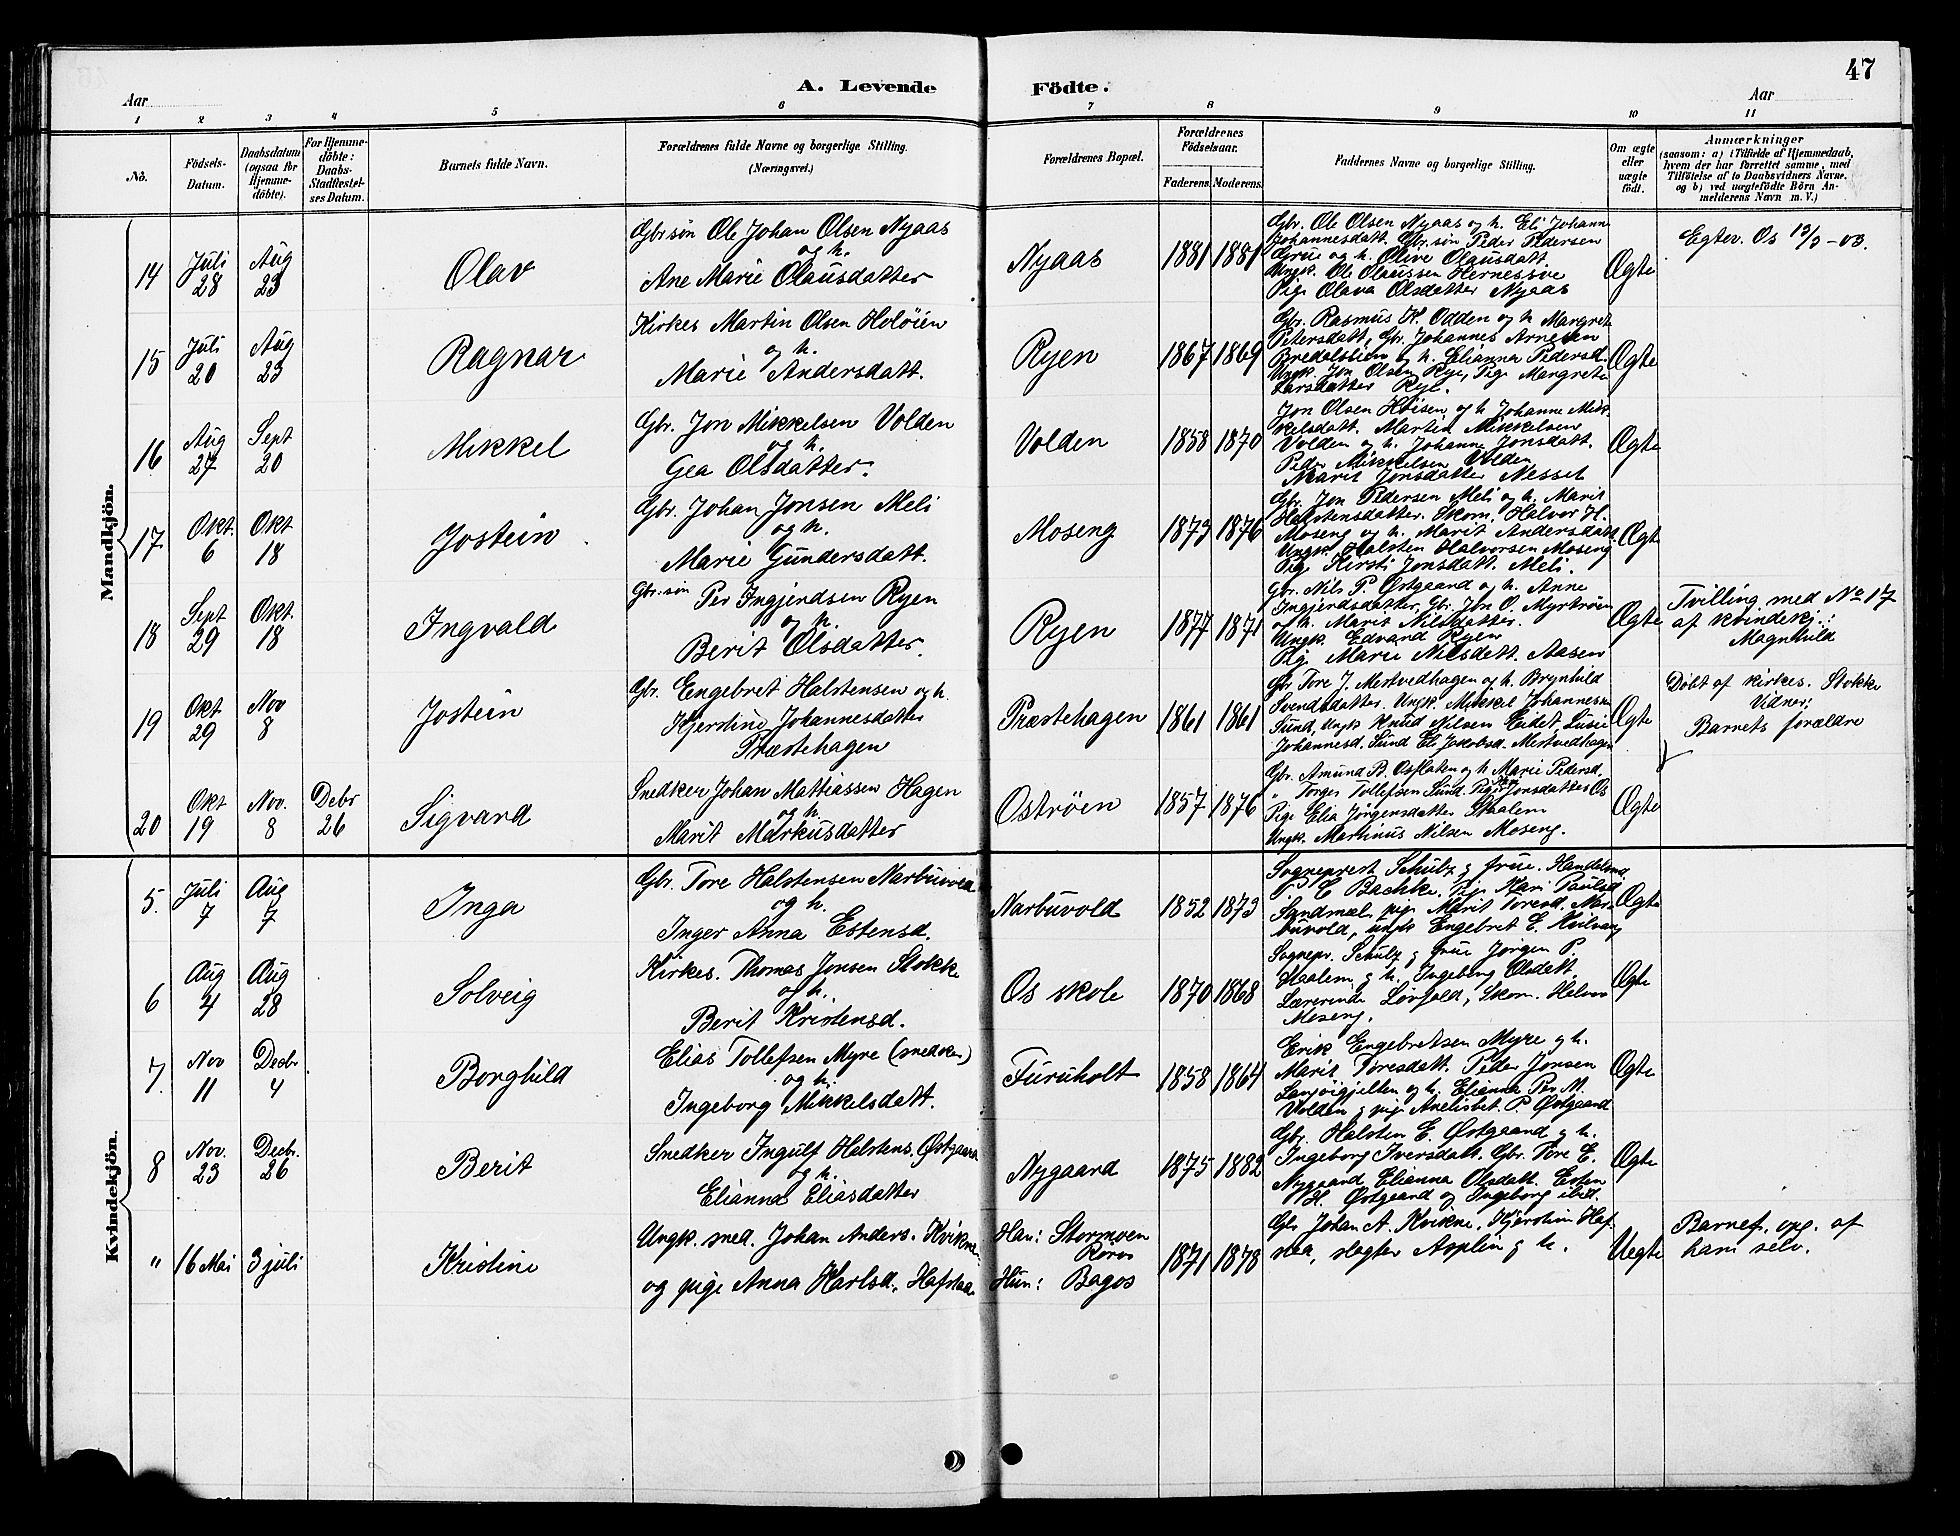 47
A. Levende Födte.
Aar
Aar
1 2 3 4 5 6 7 8 9 10 11
No.
Födsels-Datum.
Daabsdatum (ogsaa for Hjemme-döbte).
For Hjemme-döbte: Daabs-Stadfæstel-ses Datum.
Barnets fulde Navn.
Forældrenes fulde Navne og borgerlige Stilling.
(Næringsvei.)
Forældrenes Bopæl.
Forældrenes Födselsaar.
Faderens. Moderens.
Faddernes Navne og borgerlige Stilling.
Om ægte eller uægte födt.
Anmærkninger
(saasom: a) i Tilfælde af Hjemmedaab,
hvem der har forrettet samme, med
Tilföielse af to Daabsvidners Navne.
og b) ved uægtefödte Börn An-
melderens Navn m. V.)
Mandkjön.
14 Juli 28 Aug 23 Olav
Gbr.søn Ole Johan Olsen Nyaas
og h.
Ane Marie Olausdatter
Nyaas 1881 1881
Gbr. Ole Olsen Nyaas og h. Eli Johanne
Johannesdatt. Gbr.søn Peder Pedersen
Grue og h. Olive Olausdatt.
Ungk. Ole Olaussen Hernessve
Pige Olava Olsdatter Nyaas
Ægte
Egtev. Os 12/3-03.
15 Juli 20 Aug 23 Ragnar
Kirkes Martin Olsen Holøien
og h.
Marie Andersdatt.
Ryen 1867 1869
Gbr. Rasmus K. Odden og h Margret
Petersdatt, Gbr. Johannes Arnesen
Bredalslien og h. Elianna Pedersd.
Ungk. Jon Olsen Rye, Pige Margrete
Larsdatter Rye.
Ægte
16 Aug 27 Sept 20 Mikkel
Gbr. Jon Mikkelsen Volden
og h.
Gea Olsdatter.
Volden 1858 1870
Jon Olsen Høisen og h Johanne Mik
kelsdatt. Martin Mikkelsen
Volden og h. Johanne Jonsdatt.
Peder Mikkelsen Volden
Marit Jonsdatter Nesset
Ægte
17 Okt. 6 Okt 18 Jostein
Gbr. Johan Jonsen Meli
og h.
Marie Gundersdatt.
Moseng 1873 1876
Gbr. Jon Pedersen Meli og h. Marit
Halstensdatter. Skom. Halvor H.
Moseng og h. Marit Andersdatt.
Ungk. Halsten Halvorsen Moseng
Pige Kirsti Jonsdatt. Meli.
Ægte
18 Sept 29 Okt. 18 Ingvald
Gbr.søn Per Ingjerdsen Ryen
og h.
Berit Olsdatter.
Ryen 1877 1871
Gbr. Nils P. Østgaard og h. Anne
Ingjerdsdatter, Gbr. Jon O. Myrtrøen
og h. Marit Nilsdatter.
Ungk. Edvard Ryen
Pige Marie Nilsdatt. Aasen
Ægte
Tvilling med No 17
af kvindekj.:
Magnhild
19 Okt 29 Nov 8 Jostein
Gbr. Engebret Halstensen og h.
Kjerstine Johannesdatter
Præstehagen
Præstehagen 1861 1861
Gbr. Tore J. Mestvedhagen og h. Brynhild
Svendsdatter. Ungk. Mikkel Johannesen
Sund, Ungk Knud Nilsen Eidet, Lusie
Johannesd. Sund Eli Jakobsd. Mestvedhagen
Ægte
Døbt af kirkes. Stokke
Vidner:
Barnets forældre
20 Okt 19 Nov. 8 Debr 26 Sigvard
Snedker Johan Mattiassen Hagen
og h.
Marit Markusdatter
Ostrøen 1857 1876
Gbr. Amund B. Osflaten og h Marie Pedersd.
" Torger Tollefsen Sund. Pige Jonsdatter Os
Pige Elia Jørgensdatter Staalem
Ungk. Martinus Nilsen Moseng.
Ægte
Kvindekjön.
5. Juli 7 Aug 7 Inga
Gbr. Tore Halstensen Narbuvold
og h.
Inger Anna Estensd.
Narbuvold 1852 1873
Sogneprest Schulz og frue. Handelsm.
P. E Bachke. Pige Kari Paulsd
Sandmæl, pige Marit Toresd. Nar-
buvold, ungk Engebret E. Hvilvang
Ægte
6 Aug 4 Aug 28 Solveig
Kirkes. Thomas Jonsen Stokke
og h.
Berit Kristensd.
Os skole 1870 1868
Sognepr. Schulz og frue Jørgen P.
Staalem og h. Ingeborg Olsdatt.
Lærerinde Løvfald, Skom. Halvor
Moseng.
Ægte
7. Nov 11 Decbr 4 Borghild
Elias Tollefsen Myre (snedker)
og h.
Ingeborg Mikkelsdatt.
Furuholt 1858 1864
Erik Engebretsen Myre og h.
Marit Toresdatt. Peder Jonsen
Langsigjelten og h. Elianna Per M.
Volden og pige Anelisbet P. Østgaard
Ægte
8 Nov. 23 Decbr. 26 Berit
Snedker Ingulf Halstens. Østgaard
og h.
Elianna Eliasdatter
Nygaard 1875 1882
Gbr. Halsten E. Østgaard og h.
Ingeborg Iversdatt. Gbr. Tore E.
Nygaard Elianna Olsdatt. Esten
H. Østgaard og Ingeborg ibid.
Ægte
" 16 Mai 3 juli Kristine
Ungk. sned. Johan Anders. Kvikne
og pige Anna Harlsd. Hafstaa
Han: Stormoen
Røros
Hun: Bagos
1871 1878
Gbr Johan A. Kvikne, Kjerstine Haf
staa, slagter Asplin og h.
Uegte
Barnef. opg. af
ham selv.